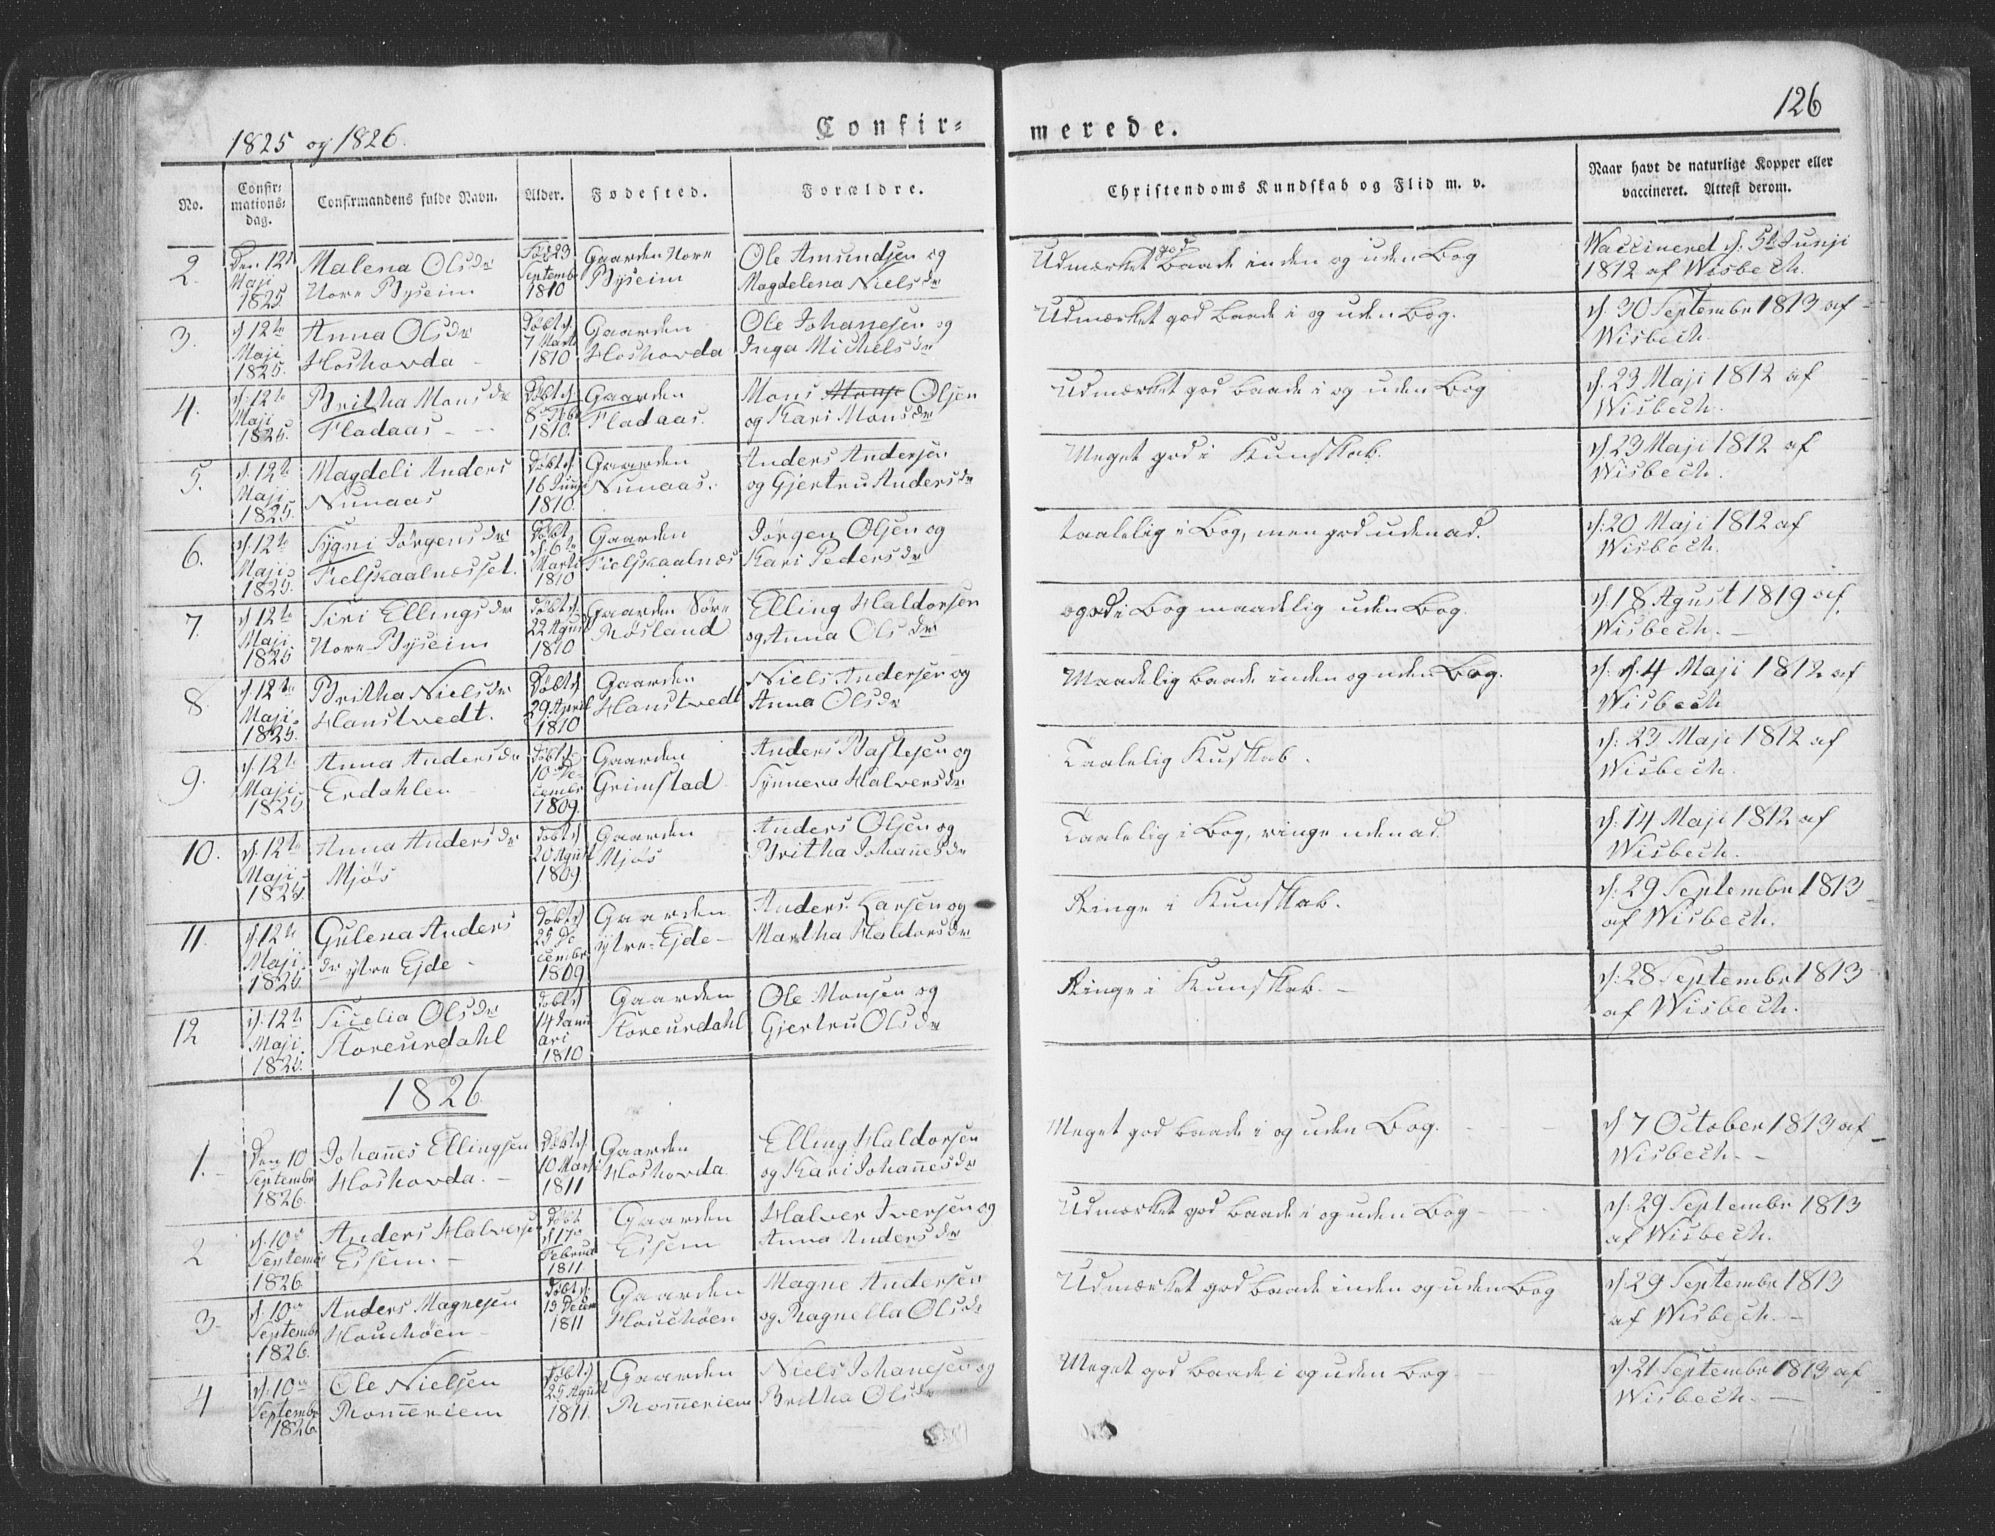 1825 og 1826.
Confir-
merede.
126
No.
Confir-
mations-
dag.
Confirmandens fulde Navn.
Alder.
Fødested.
Forældre.
Christendoms Kundskab og Flid m. v.
Naar havt de naturlige Kopper eller
vaccineret. Attest derom.
2.
Den 12t
Maji
1825
Malena Olsdr
Nore Byseim
Fød 23
Septembr
1810
Gaarden Nore
Byseim
Ole Amundsen og
Magdelena Nielsdr
Udmærket god baade inden og uden Bog
Waccineret d: 5te Junji
1812 af Wisbech.
3.
d 12te
Maji
1825.
Anna Olsdr
Hoshovda
Døbt d.
7 Marti
1810
Gaarden
Hoshovda
Ole Johanesen og
Inga Michelsdr
Udmærket god baade i og uden Bog.
d: 30 Septembr 1813 af
Wisbech.
4.
d: 12te
Maji
1825.
Britha Monsdr
Fladaas
Døbt d.
8
1810.
Gaarden
Fladaas.
Mons Olsen
og Kari Monsdr
Udmærket god baade i og uden Bog
d: 23 Maji 1812 af
Wisbech.
5.
d: 12te
Maji
1825.
Magdeli Anders
Nunaas
Døbt d.
16 Junji
1810.
Gaarden
Nunaas.
Anders Andersen
og Gjertru Andersdr
Meget god i Kunskab.
d 23 Maji 1812 af
Wisbech.
6.
d: 12te
Maji
1825.
Sygni Jørgensdr
Fielskaalnesset.
Døbt
d. 6te
Marti
1810
Gaarden
Fielskaalnæs
Jørgen Olsen og
Kari Pedersdr
taalelig i Bog, men god udenad.
d: 20 Maji 1812 af
Wisbech.
7.
d 12te
Maji
1825
Siri Ellingsdr
Nore Byseim
Døbt d.
22 Agust
1810
Gaarden Søre
Røsland
Elling Haldorsen
og Anna Olsdr
god i Bog maadelig uden Bog.
d: 18 Agust 1819 af
Wisbech.
8
d: 12te
Maji
1825.
Britha Nielsdr
Hanstvedt.
Døbt d
29 April
1810
Gaarden
Hanstvedt
Niels Andersen og
Anna Olsdr
Maadelig baade inden og uden Bog.
d: d. 4 Maji 1812 af
Wisbech
9.
d: 12te
Maji
1825
Anna Andersdr
Erdahlen
Døbt d
10 De-
cembr
1809
Gaarden
Grimstad
Anders Bastesen og
Synneva Halversdr
Taalelig Kuskab.
d: 23 Maji 1812 af
Wisbech.
10.
d: 12te
Maji
1825.
Anna Andersdr
Mjøs
Døbt d
20 Agust
1809
Gaarden
Mjøs
Anders Olsen og
Britha Johannesdr
Taalelig i Bog, ringe udenad.
d: 14 Maji 1812 af
Wisbech.
11.
d 12te
Maji
1825.
Gulena Anders
dr ytre Ejde
Døbt d
25 De
cembr
1809
Gaarden
ytre-Ejde
Anders Larsen og
Martha Haldorsdr
Ringe i Kunskab.
d: 29 Septembr 1813
af Wisbech.
12
d: 12te
Maji
1825.
Sicelia Olsdr
Storeurdahl
Døbt d
14 Janu
ari
1810
Gaarden
Storeurdahl
Ole Monsen og
Gjertru Olsdr
Ringe i Kunskab.
d: 28 Septembr 1813
af Wisbech.
1826
1.
Den 10
Septembr
1826.
Johannes Ellingsen
Hoshovda.
Døbt d
10 Marti
1811
Gaarden
Hoshovda
Elling Haldorsen
og Kari Johannesdr
Meget god baade i og uden Bog.
d 7 October 1813 af
Wisbech.
2
d: 10
Septembr
1826
Anders Halversen
Eisem.
Døbt
d 17
Februar
1811
Gaarden
Eisem
Halver Iversen og
Anna Andersdr
Udmærket god baade i og uden Bog
d: 29 Septembr 1813
af Wisbech.
3.
d: 10
Septembr
1826.
Anders Magnesen
Houchøen
Døbt d.
19 Decem
1811
Gaarden
Houchøen
Magne Andersen
og Ragnella Olsdr
Udmærket god baade inden og uden Bog
d: 29 Septembr 1813
af Wisbech.
4
d: 10
Septembr
1826
Ole Nielsen
Rommeriem
Døbt d
25 Agust
1811.
Gaarden
Rommeriem
Niels Johanesen og
Britha Olsdr
Meget god baade i og uden Bog
d: 21 Septembr 1813 af
Wisbech.